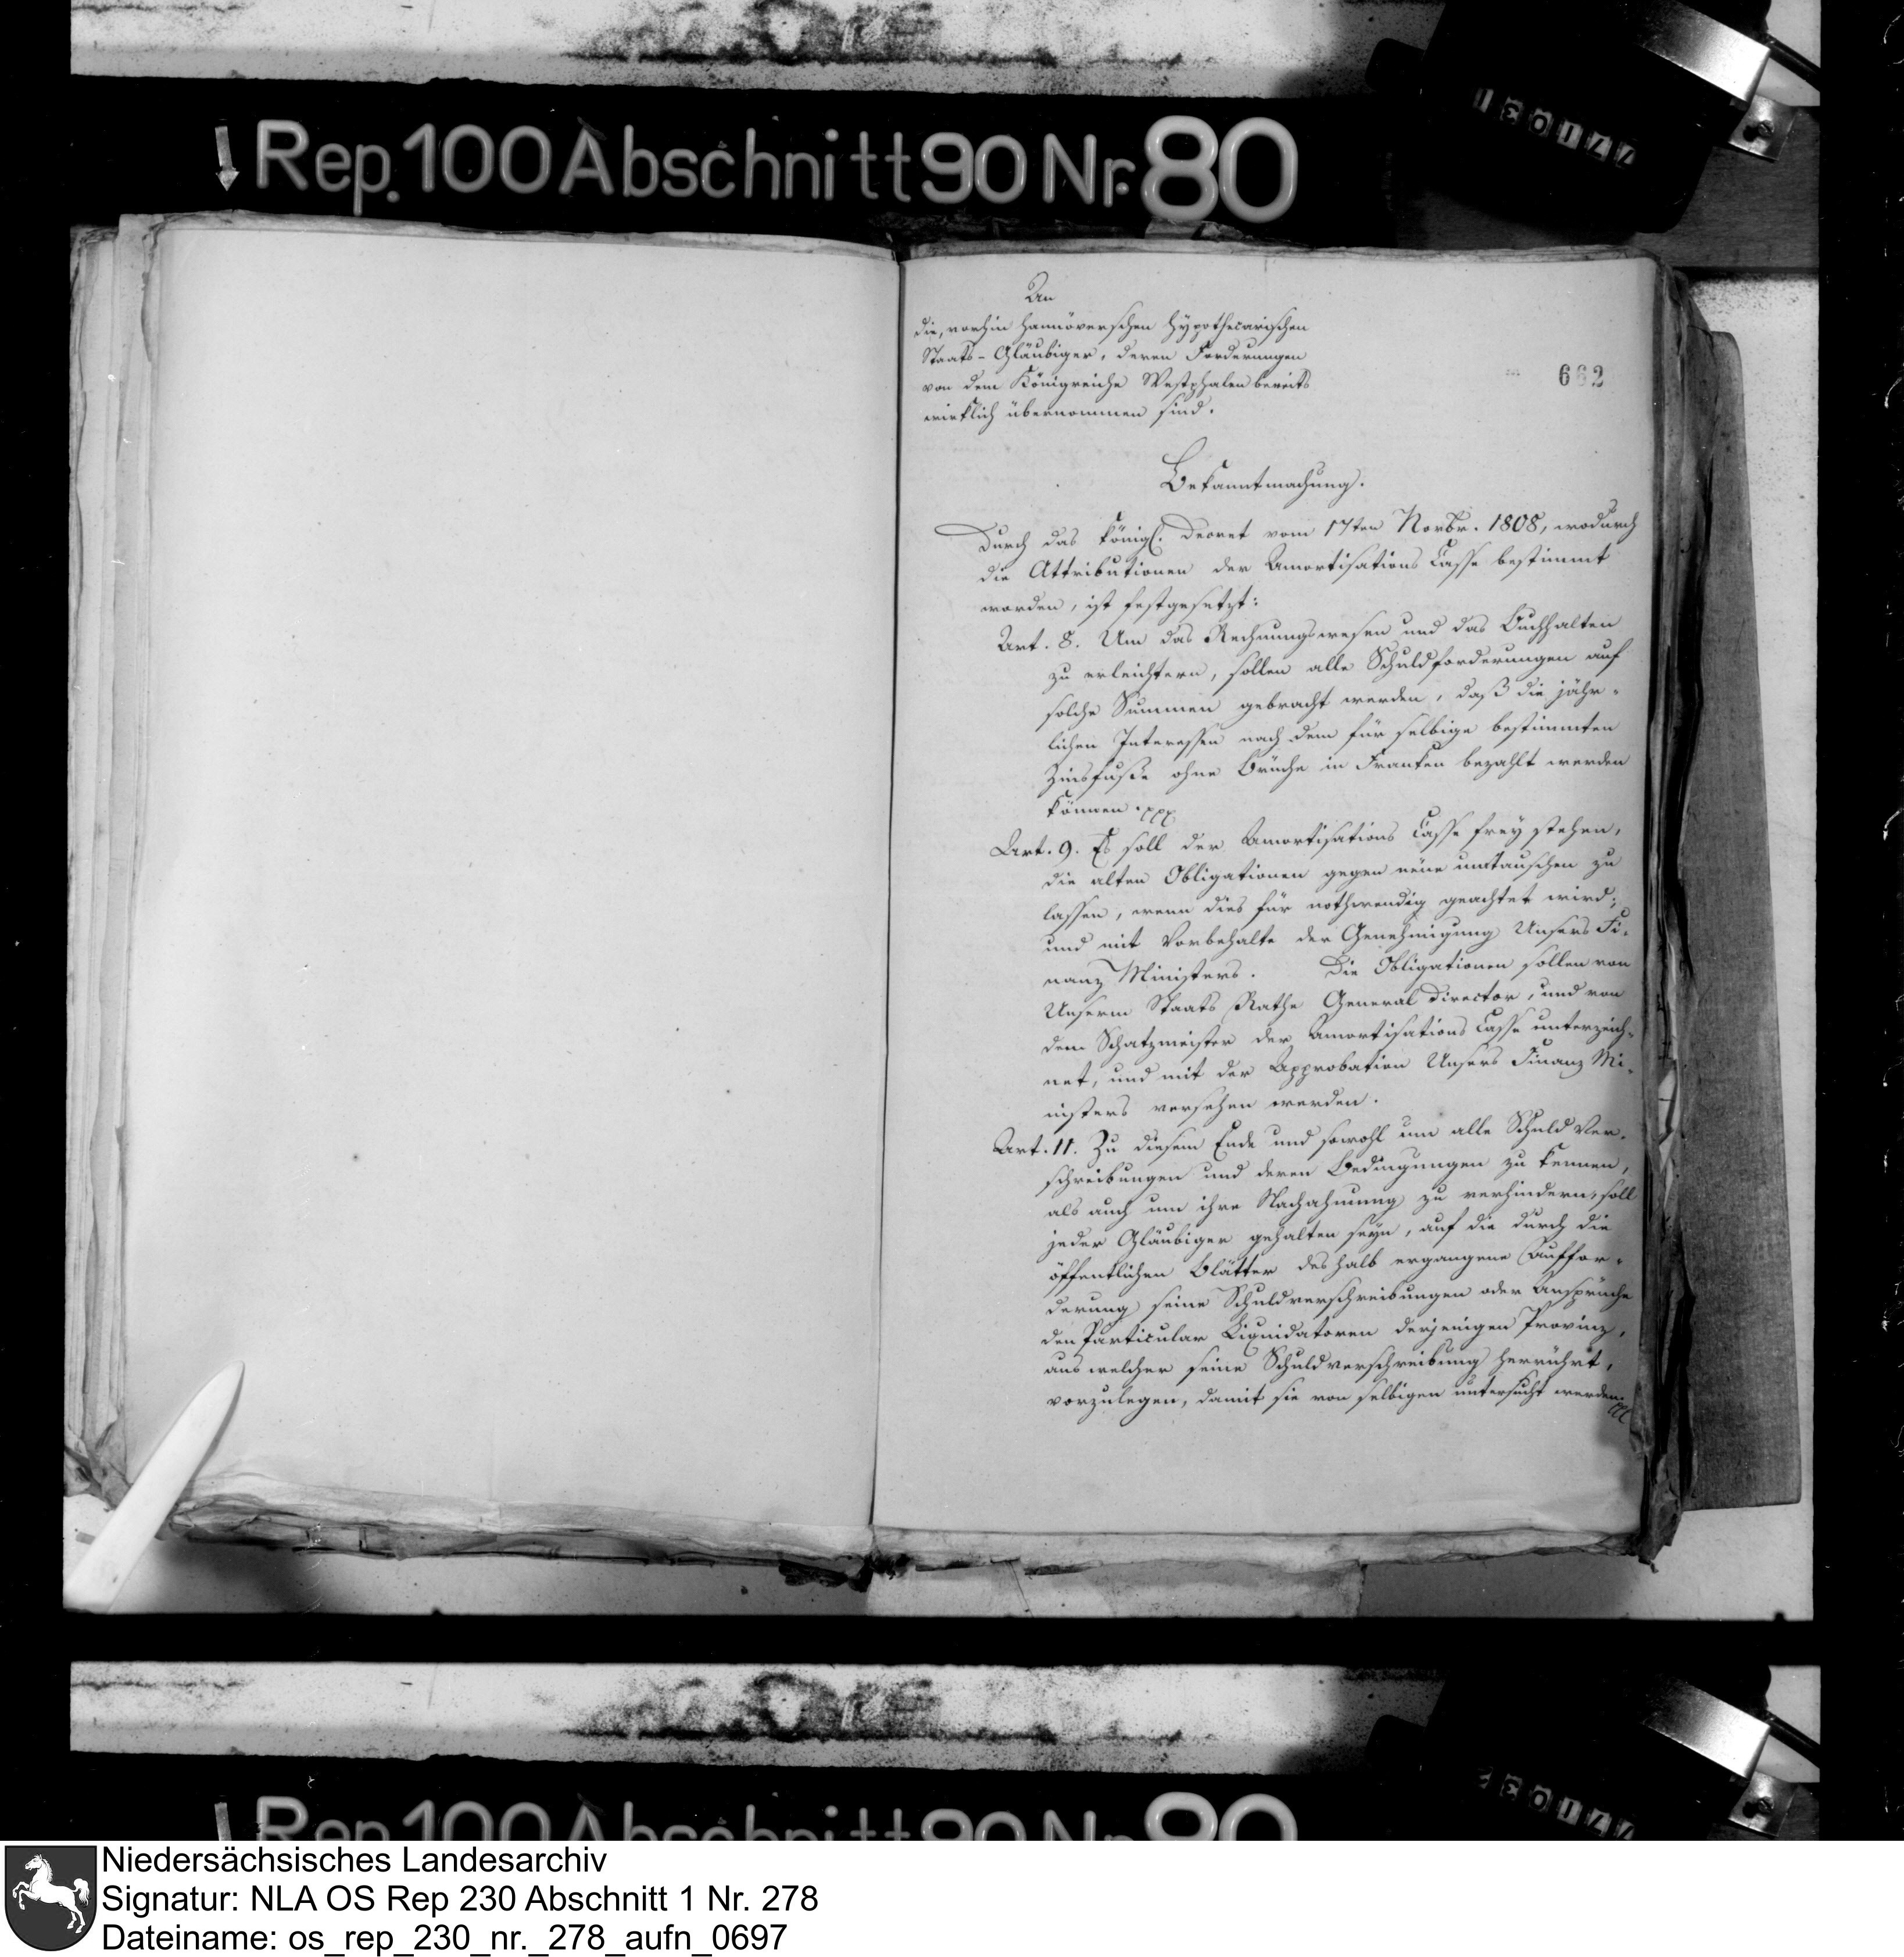 Rep. 100 Abschnitt 90 Nr. 80
An
die, vorhin hannöverschen hypothecarischen
Staats-Gläubiger, deren Forderungen
von dem Königreiche Westphalen bereits
wirklich übernommen sind.
662
Bekanntmachung.
Durch das Königl. Decret vom 17ten Novbr. 1808, wodurch
die Attributionen der Amortisations Casse bestimmt
worden, ist festgesetzt:
Art. 8. Um das Rechnungswesen und das Buchhalten
zu erleichtern, sollen alle Schuldforderungen auf
solche Summen gebracht werden, daß die jähr-
lichen Interessen nach dem für selbige bestimmten
Zinsfuße ohne Brüche in Franken bezahlt werden
können. xxx
Art. 9. Es soll der Amortisations Casse frey stehen,
die alten Obligationen gegen neüe umtauschen zu
lassen, wenn dies für nothwendig geachtet wird;
und mit Vorbehalte der Genehmigung Unsers Fi-
nanz Ministers. Die Obligationen sollen von
Unserm Staats Rathe General Director, und von
dem Schatzmeister der Amortisations Casse unterzeich-
net, und mit der Approbation Unsers Finanz Mi-
nisters versehen werden.
Art. 11. Zu diesem Ende und sowohl um alle Schuld Ver-
schreibungen und deren Bedingungen zu kennen,
als auch um ihre Nachahmung zu verhindern, soll
jeder Gläubiger gehalten seyn, auf die durch die
öffentlichen Blätter deshalb ergangene Auffor-
derung seine Schuldverschreibungen oder Ansprüche
den Particular Liquidatoren derjenigen Provinz,
aus welcher seine Schuldverschreibung herrührt,
vorzulegen, damit sie von selbigen untersucht werden.
Rep. 100 Abschnitt 90 Nr. 80
Niedersächsisches Landesarchiv
Signatur: NLA OS Rep 230 Abschnitt 1 Nr. 278
Dateiname: os_rep_230_nr._278_aufn_0697